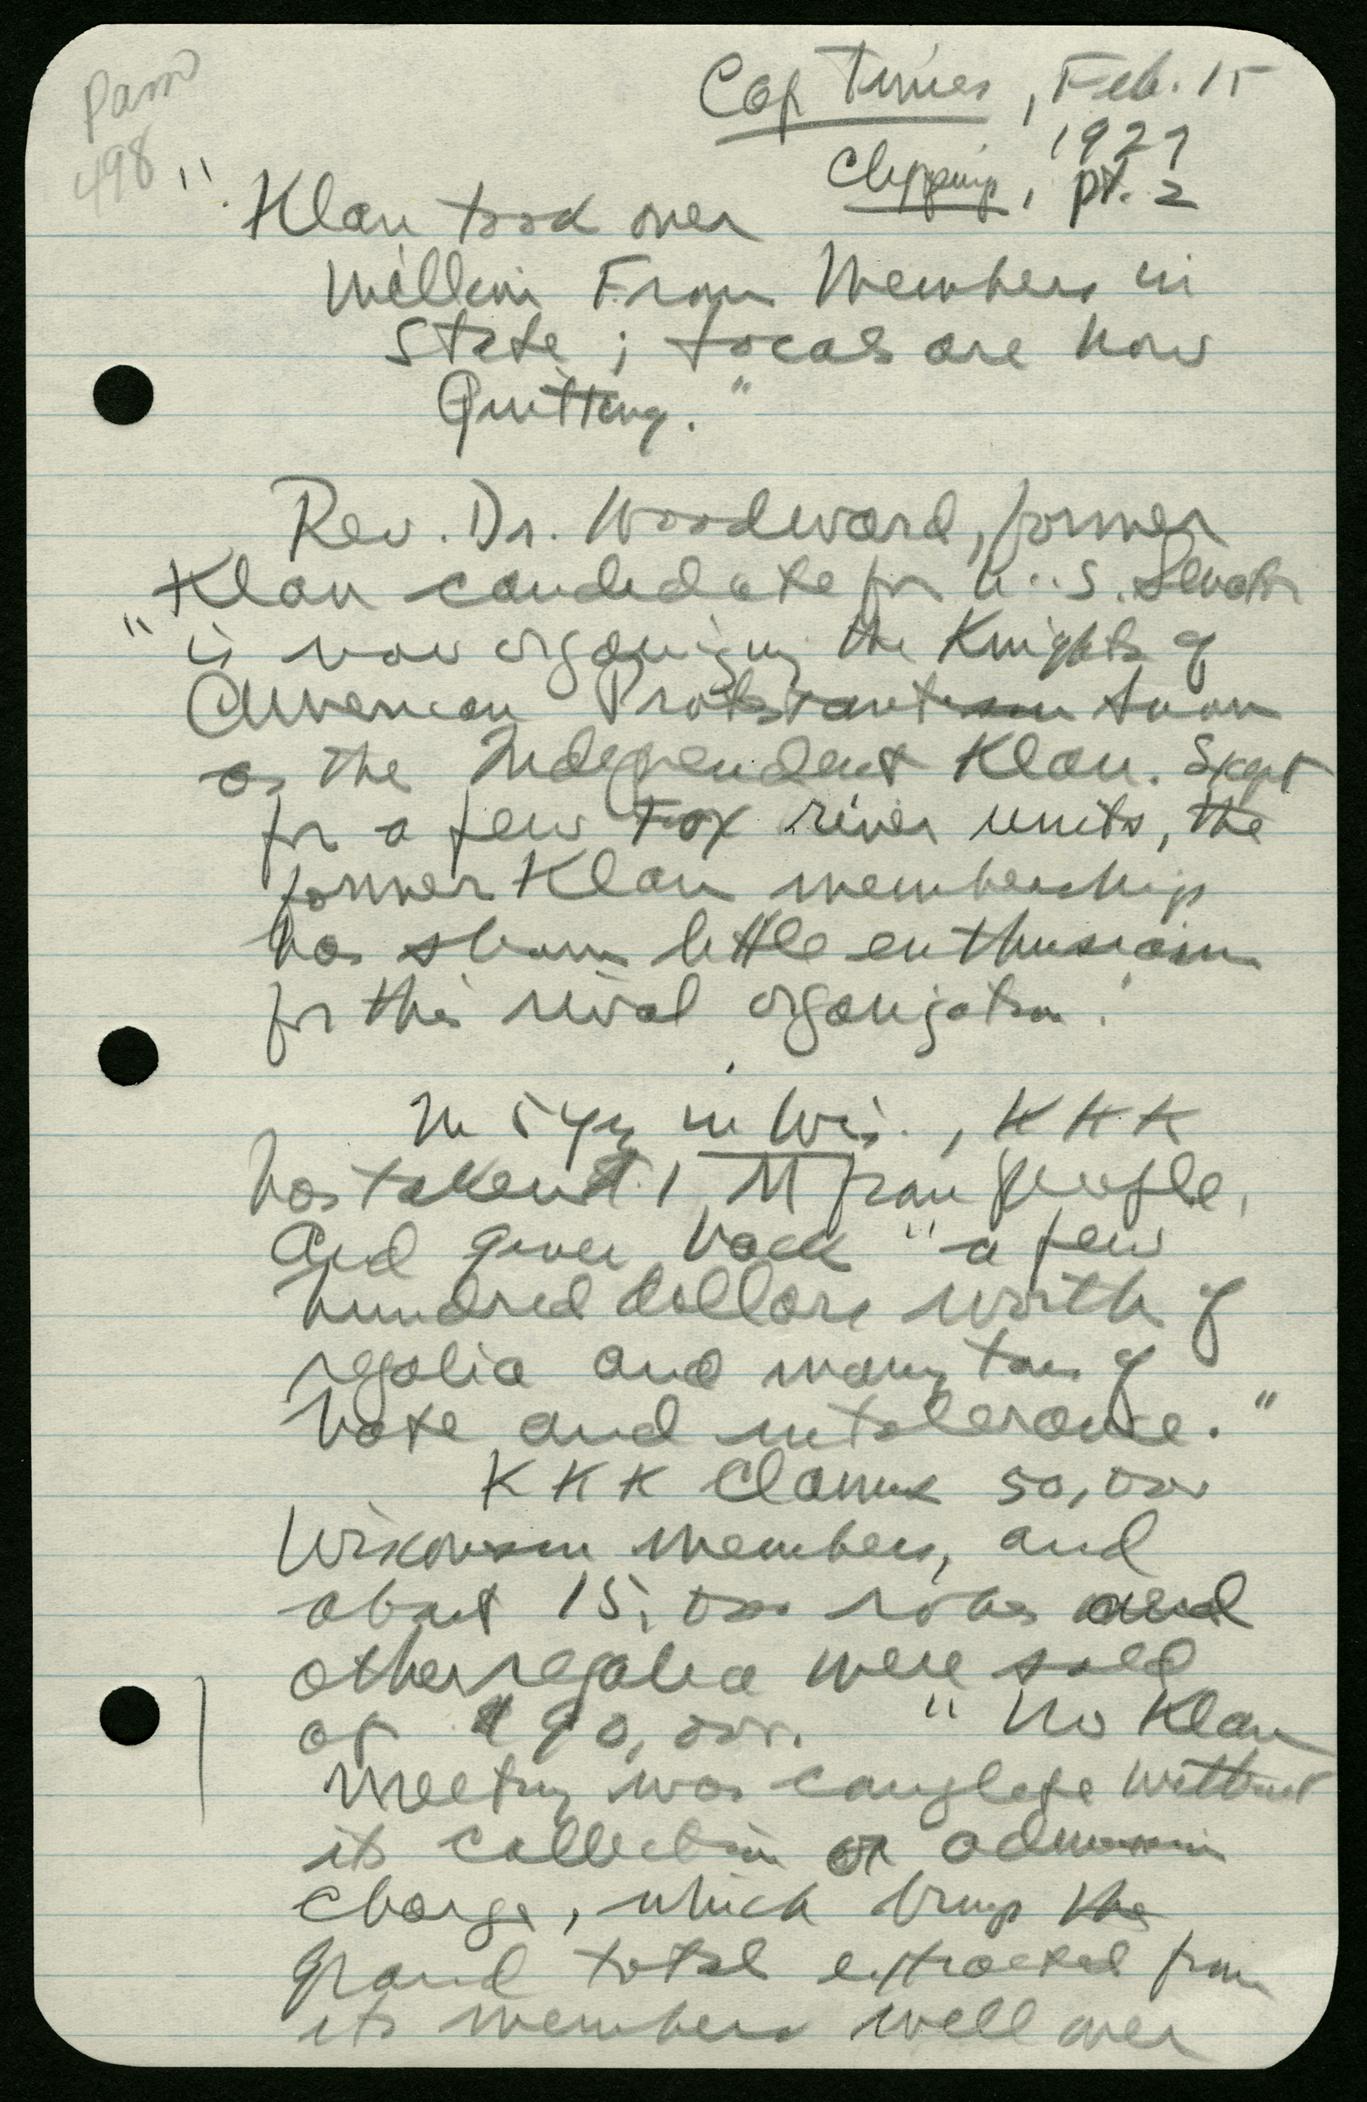 Pam
498
Cap Times, Feb. 15
1927
Clippings, pt. 2
" Klan took over
Million From Members in
State; Locals are Now
Quitting."
Rev. Dr. Woodward, former
Klan candidate for U.S. Senator
" is now organizing the Knights of
American Protestantism known
as the Independent Klan. Except
for a few Fox river units, the
former Klan membership
has shown little enthusiasm
for this rival organization."
In 5 yrs in Wis., KKK
has taken $1 M from people,
and given back "a few
hundred dollars worth of
regalia and many tons of
hate and intolerance."
KKK claims 50,000
Wisconsin members, and
about 15,000 robes and
other regalia were sold
at $90,000. "No Klan
meeting was complete without
its collection or admission
charge, which brings the
grand total extracted from
its members well over